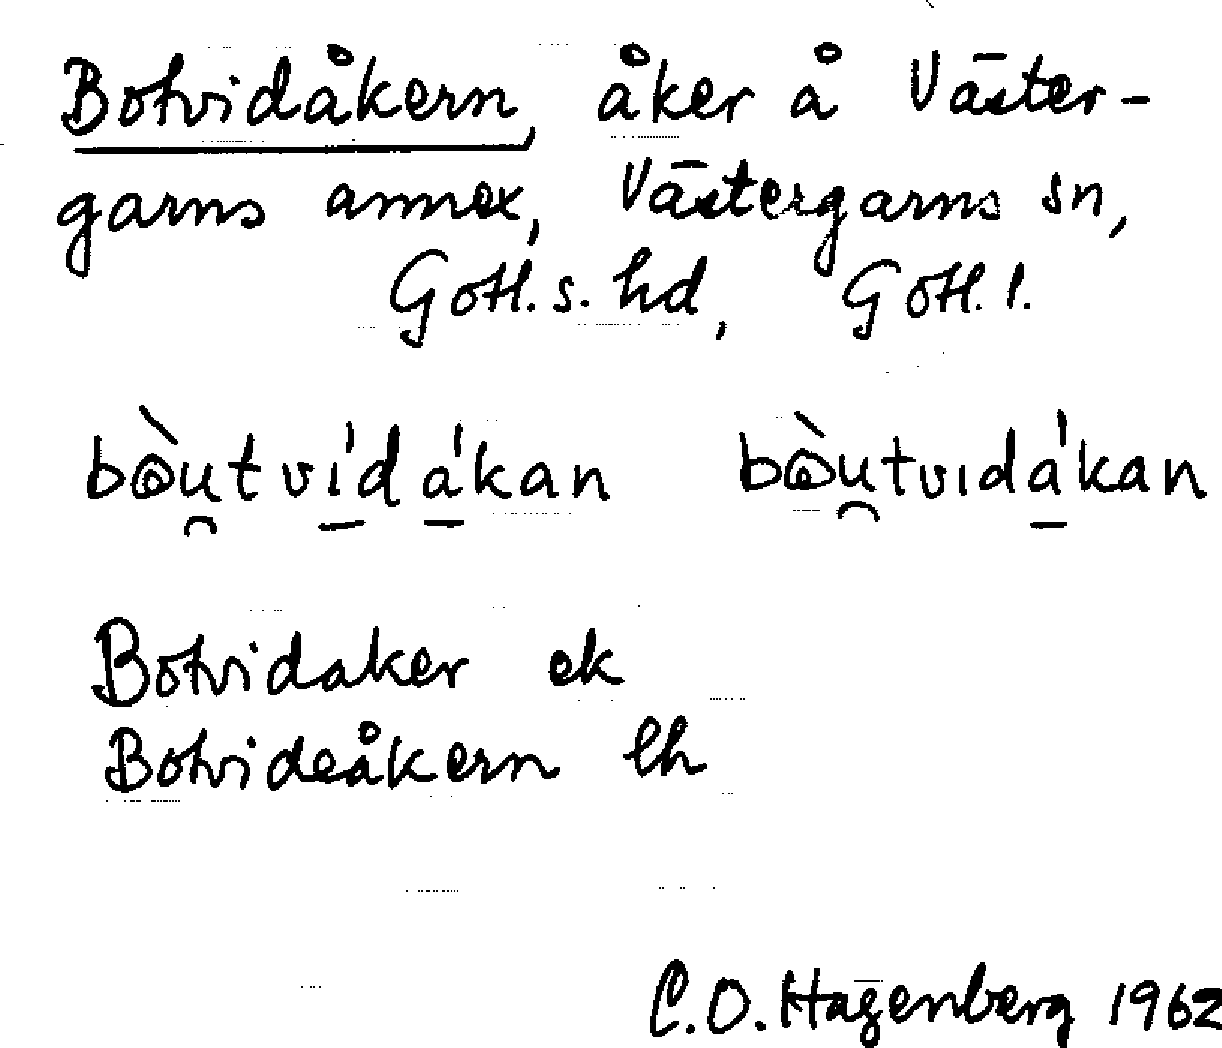 Botvidåkern, åker å Väster-
garns annex, Västergarns sn,
Gotl. s. hd, Gotl. l.
bòu̯tvídákan bòu̯tvidákan
Botvidaker ek
Botvideåkern lh
C.O. Hagenberg 1962